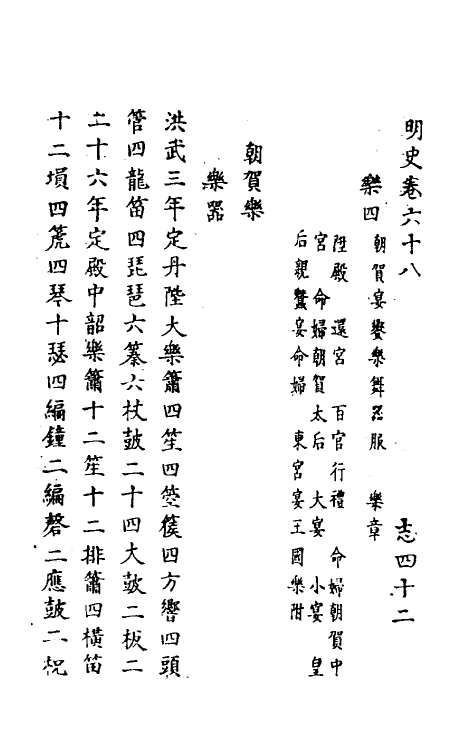 明史卷六十八 志四十二
樂四 朝賀宴饗樂舞器服 樂章
陞殿 還宮 百官行禮 命婦朝賀中
宮 命婦朝賀太后 大宴 小宴 皇
后親蠶宴命婦 東宮宴王國樂附
朝賀樂
樂器
洪武三年定丹陛大樂簫四笙四箜篌四方響四頭
管四龍笛四琵琶六𥱧六杖鼓二十四大鼓二板二
二十六年定殿中韶樂簫十二笙十二排簫四橫笛
十二塤四篪四琴十瑟四編鐘二編磬二應鼓二柷